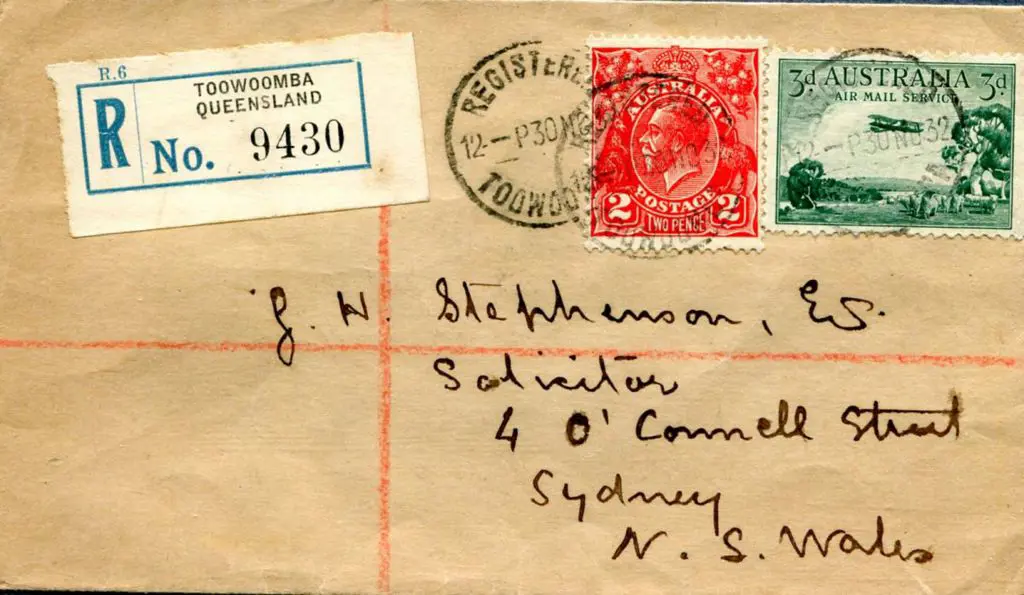 R.6
TOOWOOMBA
QUEENSLAND
R No. 9430
REGISTERED
12 - P 30 NO 32
TOOWOOMBA
AUSTRALIA
2 POSTAGE 2
TWO PENCE
3d AUSTRALIA 3d
AIR MAIL SERVICE
12 - P 30 NO 32
J. H. Stephenson, Es.
Solicitor
4 O'Connell Street
Sydney
N. S. Wales